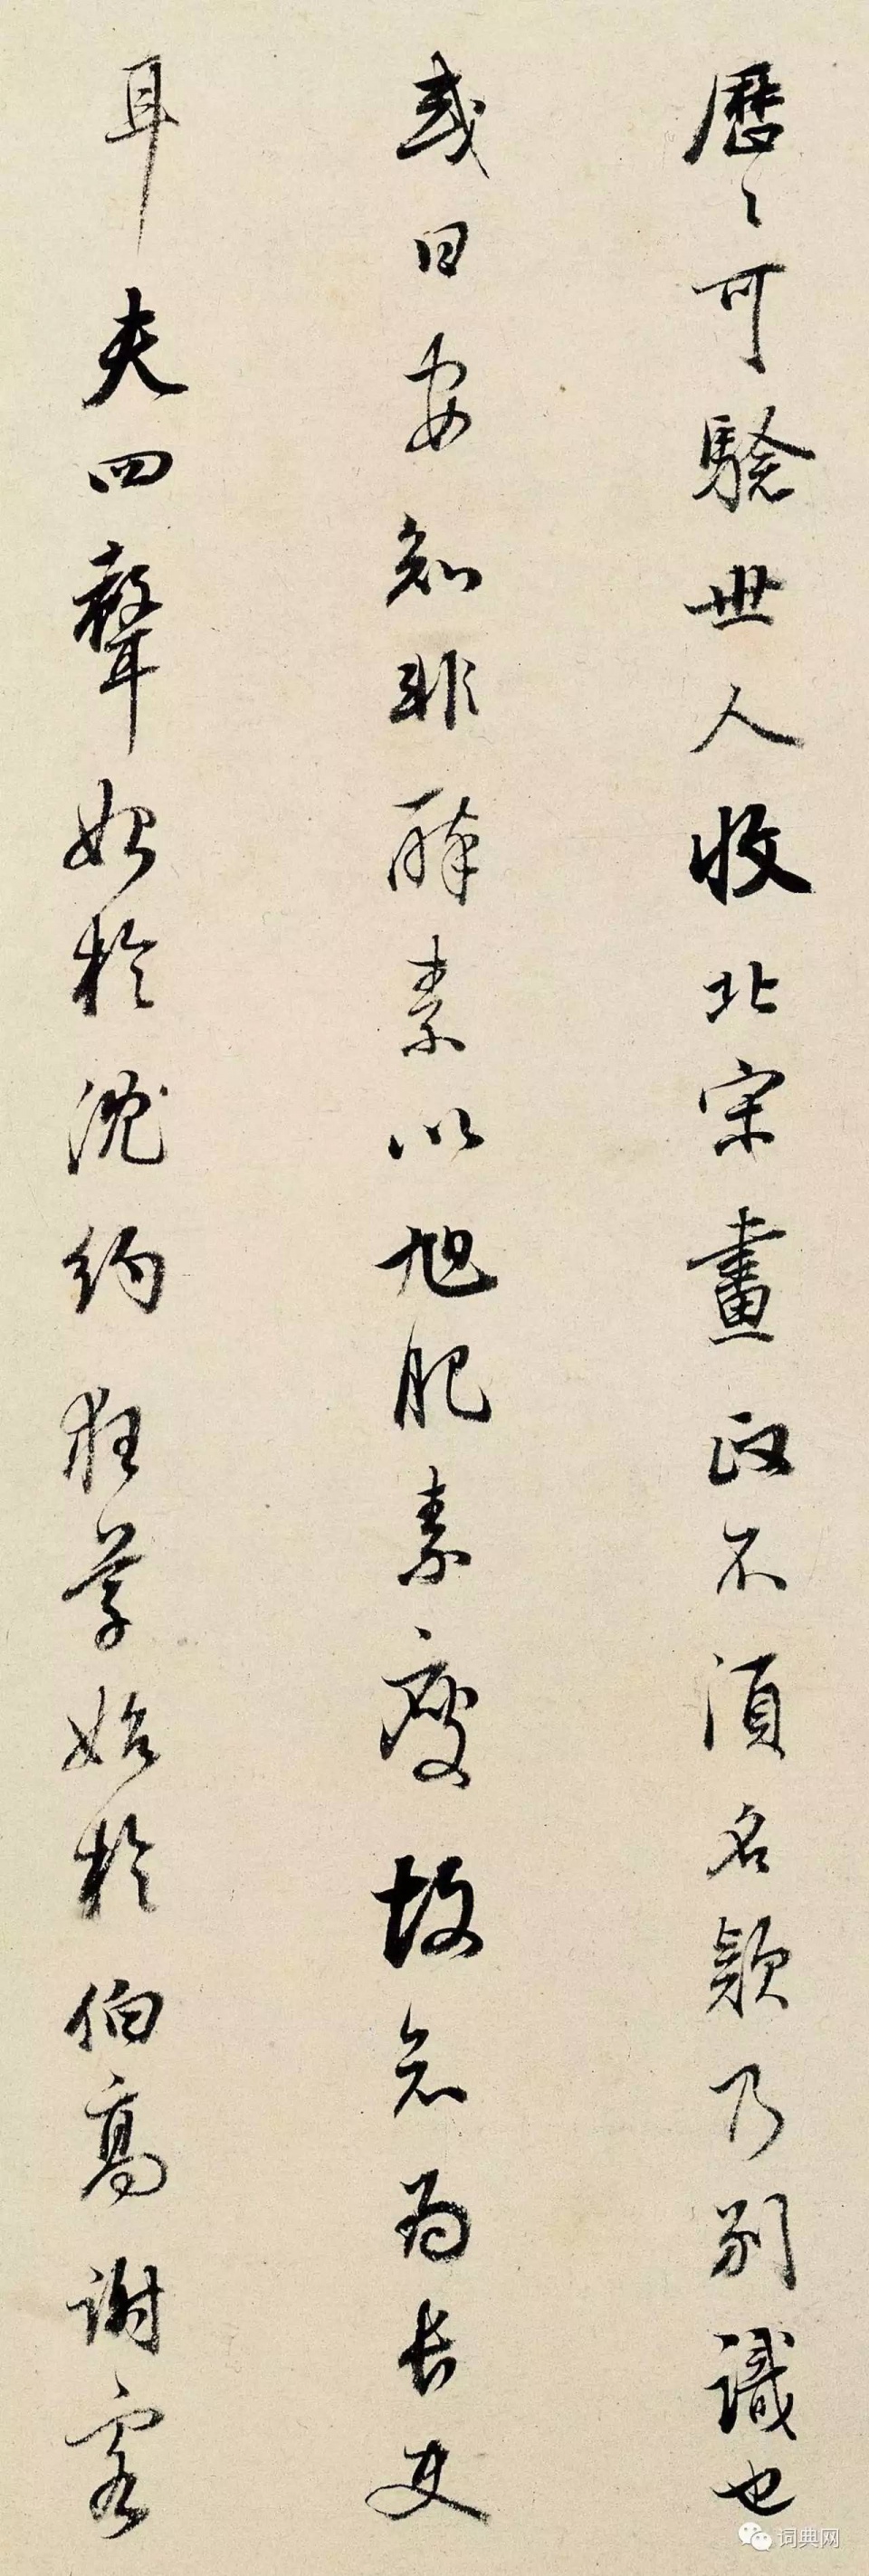 歷〻可驗世人收北宋畫政不須名款乃別識也
或曰安知非醉素以旭肥素瘦故知為長史
耳夫四聲始於沈約狂草始於伯高謝客
词典网